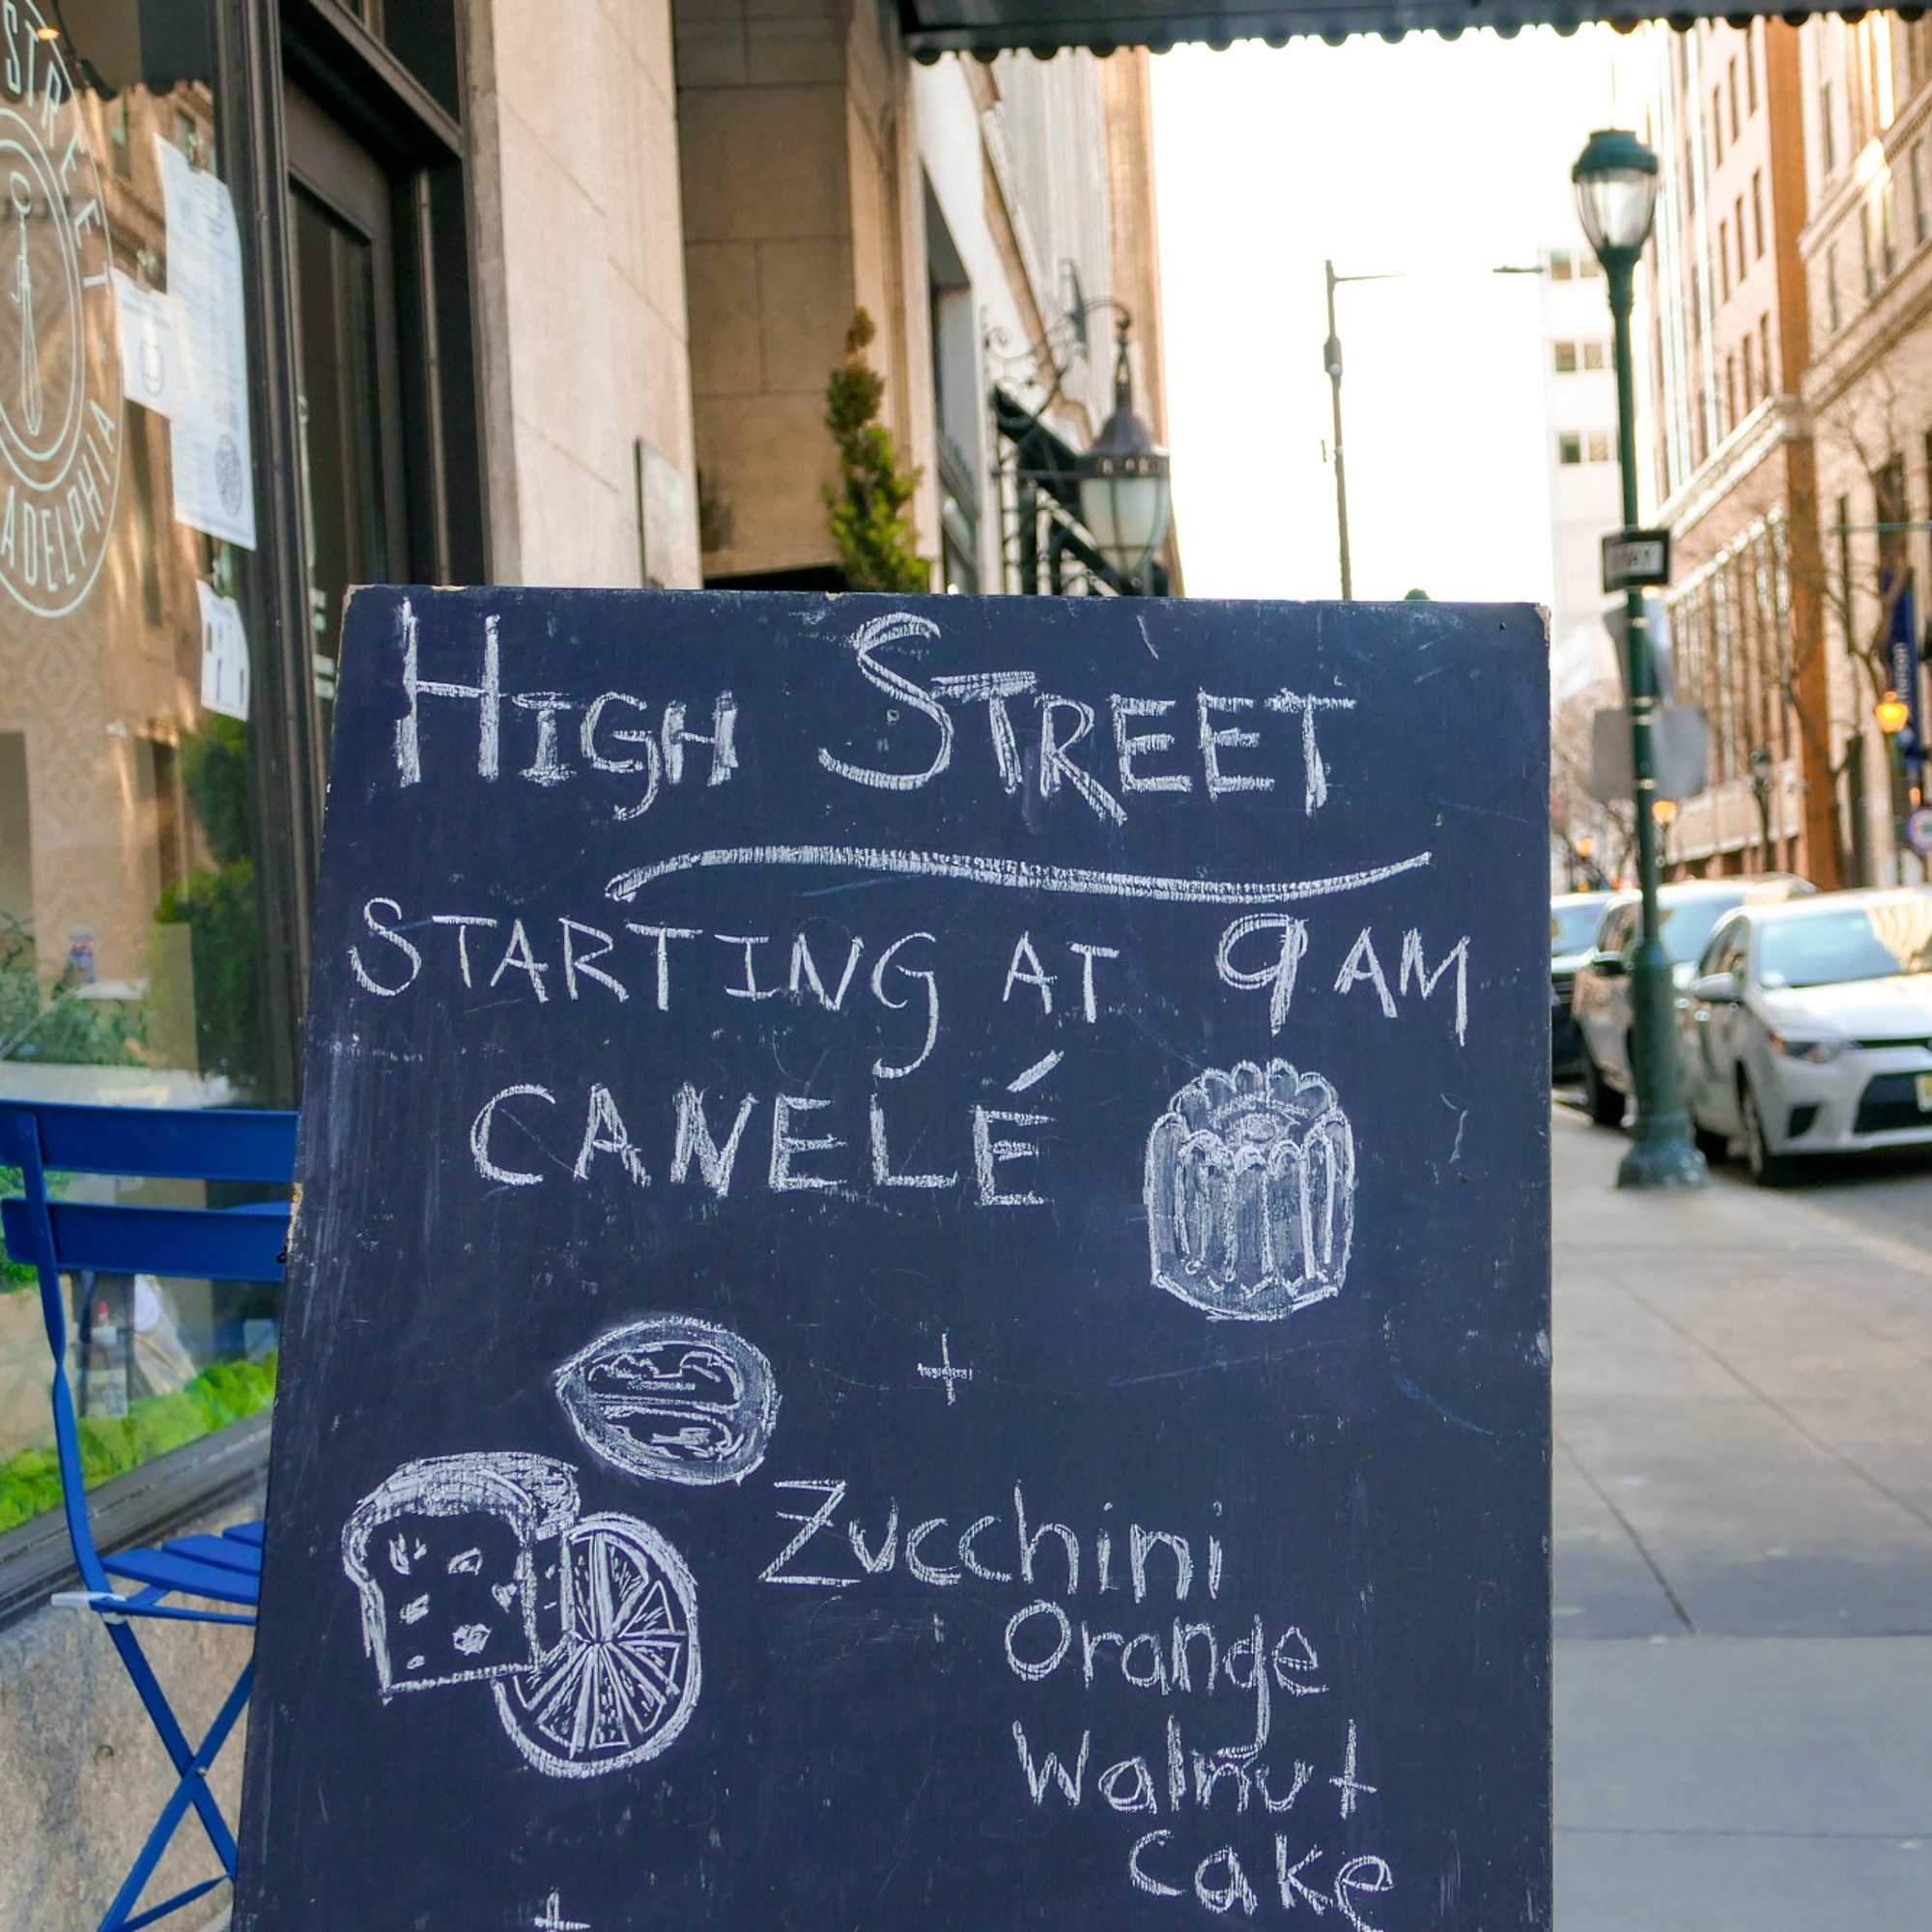 STREET
ADELPHIA
HIGH STREET
STARTING AT 9 AM
CANELÉ
+
Zucchini
Orange
Walnut
Cake
+